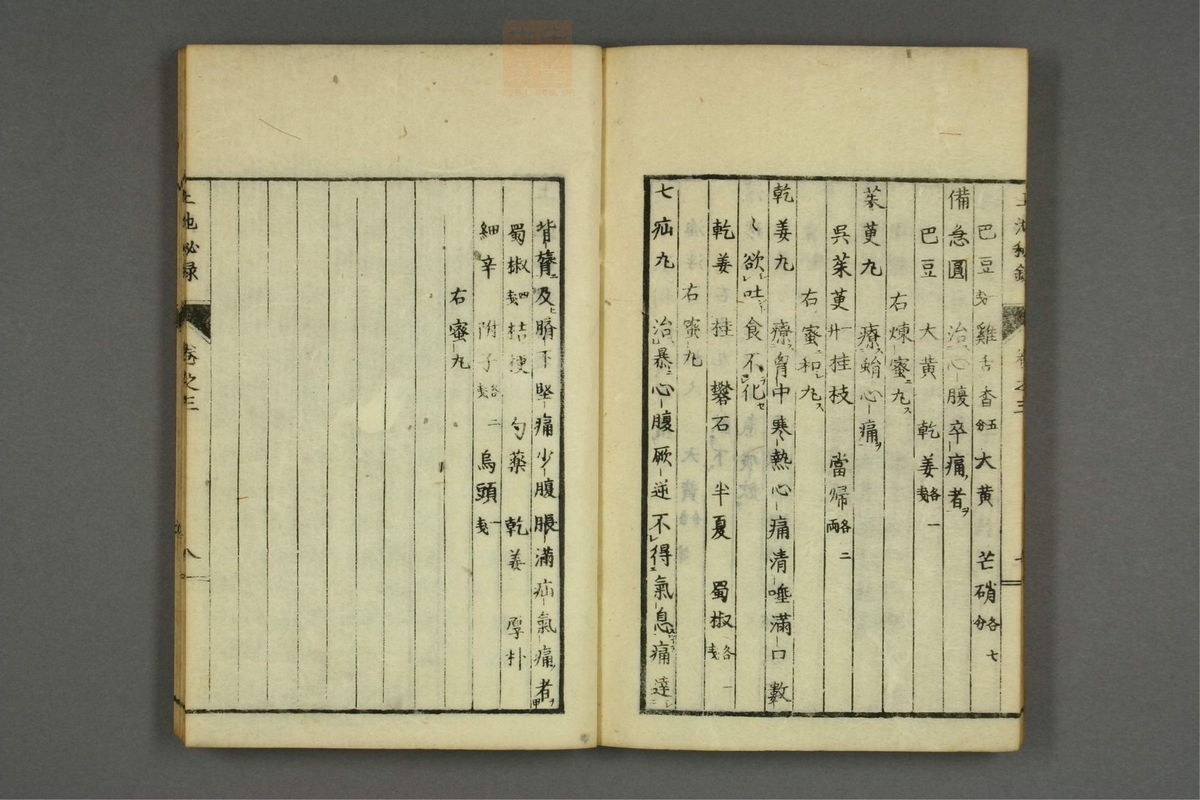 巴豆戔 雞舌香五分 大黃 芒硝各七分
備急圓 治心腹卒痛者
巴豆 大黃 乾姜各一戔
右煉蜜丸
茱萸丸 療蛕心痛
吳茱萸 桂枝 當歸各二兩
右蜜和丸
乾姜丸 療胷中寒熱心痛清唾滿口數
欲吐食不化
乾姜 桂 礬石 半夏 蜀椒各一戔
右蜜丸
七疝丸 治暴心腹厥逆不得氣息痛達
背膂及臍下堅痛少腹脹滿疝氣痛者
蜀椒四戔 桔梗 勺藥 乾姜 厚朴
細辛 附子各二戔 烏頭一戔
右蜜丸
秘録 卷之三